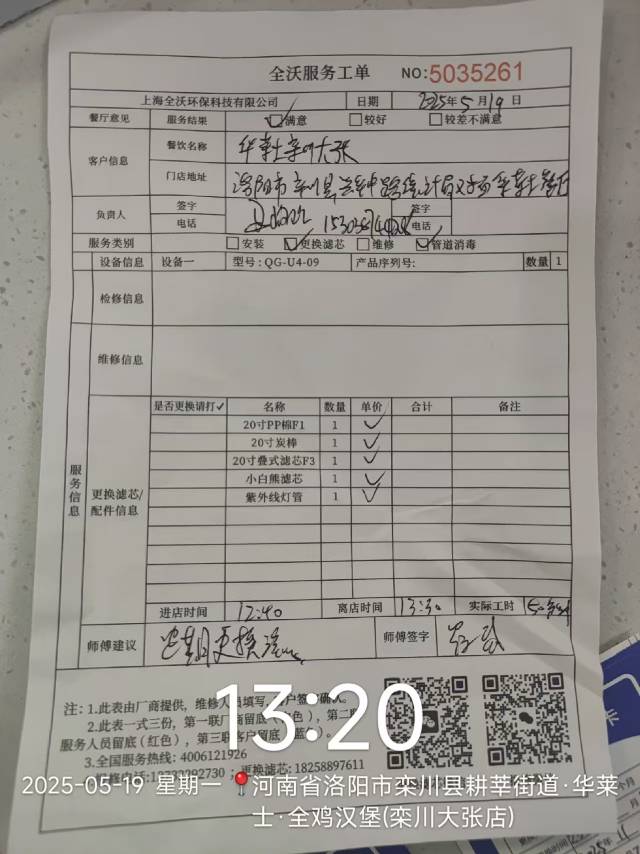 全沃服务工单 NO:5035261
上海全沃环保科技有限公司 日期 2025年5月19日
餐厅意见 服务结果 ☑满意 □较好 □较差不满意
客户信息 餐饮名称
门店地址 洛阳市
负责人 签字 签字
电话 电话
服务类别 □安装 ☑更换滤芯 □维修 ☑管道消毒
设备信息 设备一 型号:QG-U4-09 产品序列号: 数量 1
检修信息
维修信息
服务信息
更换滤芯/配件信息
是否更换请打✓ 名称 数量 单价 合计 备注
20寸PP棉F1 1 ✓
20寸炭棒 1 ✓
20寸叠式滤芯F3 1 ✓
小白熊滤芯 1 ✓
紫外线灯管 1 ✓
进店时间 12:40 离店时间 13:30 实际工时
师傅建议 定期更换滤芯 师傅签字
注:1.此表由厂商提供,维修人员填写,客户签字确认。
2.此表一式三份,第一联厂商留底
服务人员留底(红色),第三联客户留底
3.全国服务热线:4006121926
更换滤芯:18258897611
13:20
2025-05-19 星期一 📍河南省洛阳市栾川县耕莘街道·华莱
士·全鸡汉堡(栾川大张店)